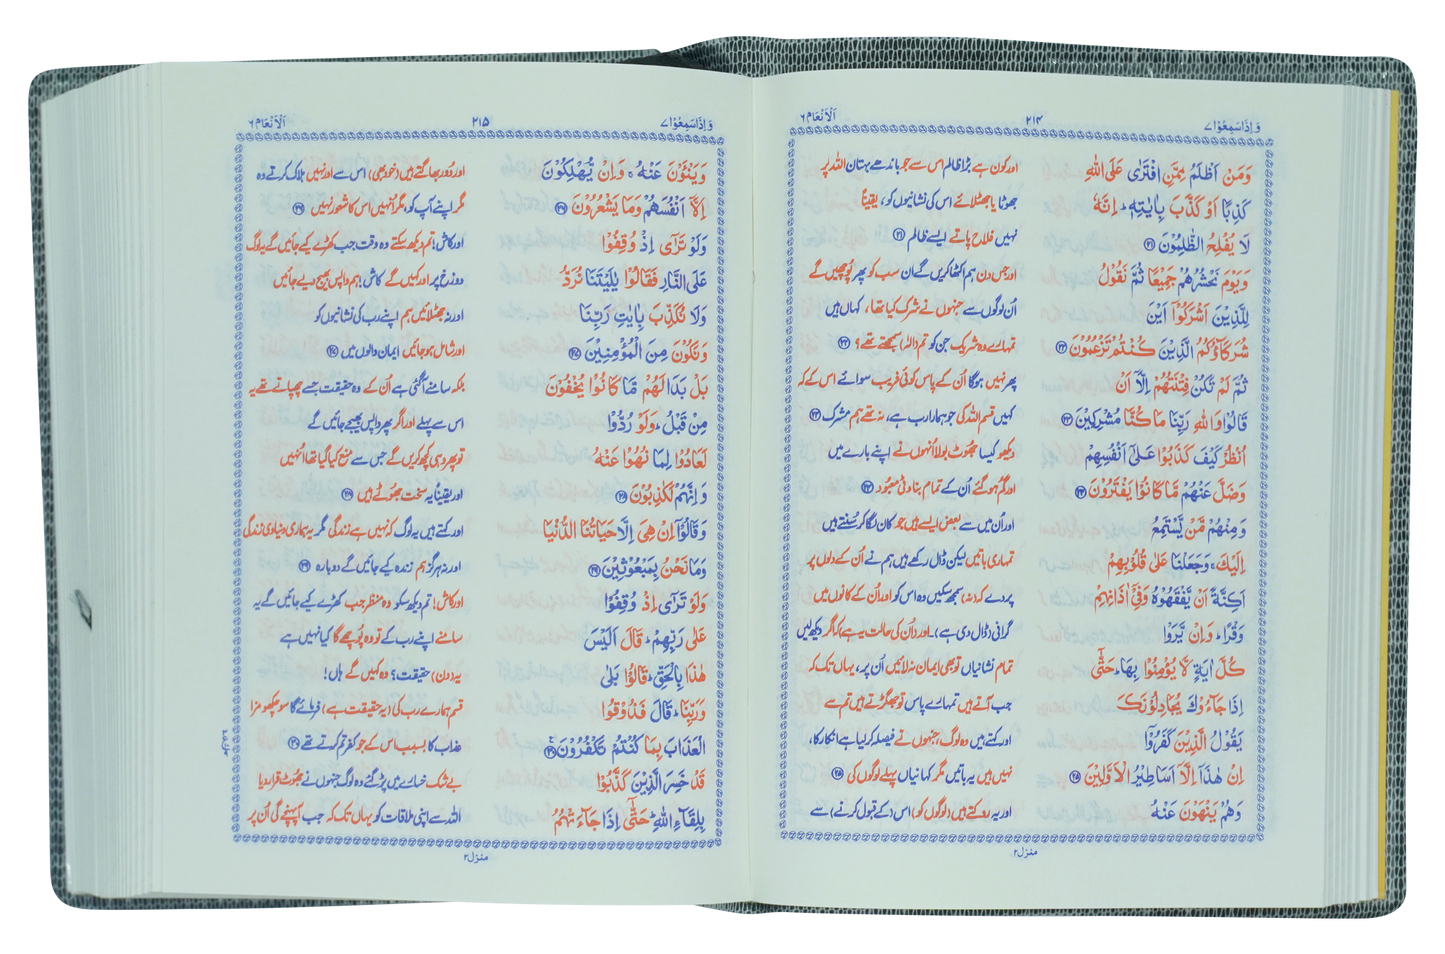 وَاِذَاسَمِعُوْا۷ ۲۱۴ اَلْاَنْعَام۶
وَمَنْ اَظْلَمُ مِمَّنِ افْتَرٰى عَلَى اللّٰهِ اور کون ہے بڑا ظالم اس سے جو باندھے بہتان اللہ پر
كَذِبًا اَوْ كَذَّبَ بِاٰيٰتِهٖ ؕ اِنَّهٗ جھوٹا یا جھٹلائے اس کی نشانیوں کو، یقیناً
لَا يُفْلِحُ الظّٰلِمُوْنَ ۲۱ نہیں فلاح پاتے ایسے ظالم ۲۱
وَيَوْمَ نَحْشُرُهُمْ جَمِيْعًا ثُمَّ نَقُوْلُ اور جس دن ہم اکٹھا کریں گے ان سب کو پھر پُوچھیں گے
لِلَّذِيْنَ اَشْرَكُوْۤا اَيْنَ اُن لوگوں سے جنہوں نے شرک کیا تھا، کہاں ہیں
شُرَكَآؤُكُمُ الَّذِيْنَ كُنْتُمْ تَزْعُمُوْنَ ۲۲ تمہارے وہ شریک جن کو تم (الٰہ) سمجھتے تھے؟ ۲۲
ثُمَّ لَمْ تَكُنْ فِتْنَتُهُمْ اِلَّاۤ اَنْ پھر نہیں ہوگا اُن کے پاس کوئی فریب سوائے اس کے کہ
قَالُوْا وَاللّٰهِ رَبِّنَا مَا كُنَّا مُشْرِكِيْنَ ۲۳ کہیں قسم اللہ کی جو ہمارا رب ہے، نہ تھے ہم مشرک ۲۳
اُنْظُرْ كَيْفَ كَذَبُوْا عَلٰۤى اَنْفُسِهِمْ دیکھو کیسا جھوٹ بولا انہوں نے اپنے بارے میں
وَضَلَّ عَنْهُمْ مَّا كَانُوْا يَفْتَرُوْنَ ۲۴ اور گم ہوگئے اُن کے تمام بناوٹی معبود ۲۴
وَمِنْهُمْ مَّنْ يَّسْتَمِعُ اور ان میں سے بعض ایسے ہیں جو کان لگا کر سُنتے ہیں
اِلَيْكَ ۚ وَجَعَلْنَا عَلٰى قُلُوْبِهِمْ تمہاری باتیں لیکن ڈال رکھے ہیں ہم نے اُن کے دلوں پر
اَكِنَّةً اَنْ يَّفْقَهُوْهُ وَفِيْۤ اٰذَانِهِمْ پردے کہ (نہ) سمجھ سکیں وہ اس کو اور اُن کے کانوں میں
وَقْرًا ؕ وَاِنْ يَّرَوْا گرانی (ڈال دی ہے)۔ اور (اُن کی حالت یہ ہے) کہ اگر دیکھ لیں
كُلَّ اٰيَةٍ لَّا يُؤْمِنُوْا بِهَا ؕ حَتّٰۤى تمام نشانیاں تو بھی ایمان نہ لائیں اُن پر، یہاں تک کہ
اِذَا جَآءُوْكَ يُجَادِلُوْنَكَ جب آتے ہیں تمہارے پاس تو جھگڑتے ہیں تم سے
يَقُوْلُ الَّذِيْنَ كَفَرُوْۤا اور کہتے ہیں وہ لوگ، جنہوں نے فیصلہ کر لیا ہے انکار کا،
اِنْ هٰذَاۤ اِلَّاۤ اَسَاطِيْرُ الْاَوَّلِيْنَ ۲۵ نہیں ہیں یہ باتیں مگر کہانیاں پہلے لوگوں کی ۲۵
وَهُمْ يَنْهَوْنَ عَنْهُ اور یہ روکتے ہیں (لوگوں کو) اس (کے قبول کرنے) سے
منزل۲
وَاِذَاسَمِعُوْا۷ ۲۱۵ اَلْاَنْعَام۶
وَيَنْـَٔوْنَ عَنْهُ ۚ وَاِنْ يُّهْلِكُوْنَ اور دُور بھاگتے ہیں (خود بھی) اس سے اور نہیں ہلاک کرتے وہ
اِلَّاۤ اَنْفُسَهُمْ وَمَا يَشْعُرُوْنَ ۲۶ مگر اپنے آپ کو، مگر اُنہیں اس کا شعور نہیں ۲۶
وَلَوْ تَرٰۤى اِذْ وُقِفُوْا اور کاش! تم دیکھ سکتے وہ وقت جب کھڑے کیے جائیں گے یہ لوگ
عَلَى النَّارِ فَقَالُوْا يٰلَيْتَنَا نُرَدُّ دوزخ پر اور کہیں گے کاش! ہم واپس بھیج دیے جائیں
وَلَا نُكَذِّبَ بِاٰيٰتِ رَبِّنَا اور نہ جھٹلائیں ہم اپنے رب کی نشانیوں کو
وَنَكُوْنَ مِنَ الْمُؤْمِنِيْنَ ۲۷ اور شامل ہو جائیں ایمان والوں میں ۲۷
بَلْ بَدَا لَهُمْ مَّا كَانُوْا يُخْفُوْنَ بلکہ سامنے آگئی ہے اُن کے وہ حقیقت جسے چھپاتے تھے یہ
مِنْ قَبْلُ ؕ وَلَوْ رُدُّوْا اس سے پہلے اور اگر پھر واپس بھیجے جائیں گے
لَعَادُوْا لِمَا نُهُوْا عَنْهُ تو پھر وہی کچھ کریں گے جس سے منع کیا گیا تھا اُنہیں
وَاِنَّهُمْ لَكٰذِبُوْنَ ۲۸ اور یقیناً یہ سخت جھوٹے ہیں ۲۸
وَقَالُوْۤا اِنْ هِيَ اِلَّا حَيَاتُنَا الدُّنْيَا اور کہتے ہیں یہ لوگ کہ نہیں ہے زندگی مگر یہ ہماری دُنیاوی زندگی
وَمَا نَحْنُ بِمَبْعُوْثِيْنَ ۲۹ اور نہ ہرگز ہم زندہ کیے جائیں گے دوبارہ ۲۹
وَلَوْ تَرٰۤى اِذْ وُقِفُوْا اور کاش! تم دیکھ سکو وہ منظر جب کھڑے کیے جائیں گے یہ
عَلٰى رَبِّهِمْ ؕ قَالَ اَلَيْسَ سامنے اپنے رب کے تو وہ پُوچھے گا کیا نہیں ہے
هٰذَا بِالْحَقِّ ؕ قَالُوْا بَلٰى یہ (دن) حقیقت؟ وہ کہیں گے ہاں!
وَرَبِّنَا ؕ قَالَ فَذُوْقُوا قسم ہمارے رب کی (یہ حقیقت ہے)، فرمائے گا سو چکھو مزا
الْعَذَابَ بِمَا كُنْتُمْ تَكْفُرُوْنَ ۳۰ عذاب کا بسبب اس کے جو کفر تم کرتے تھے ۳۰
قَدْ خَسِرَ الَّذِيْنَ كَذَّبُوْا بے شک خسارے میں پڑ گئے وہ لوگ جنہوں نے جھوٹ قرار دیا
بِلِقَآءِ اللّٰهِ ؕ حَتّٰۤى اِذَا جَآءَتْهُمُ اللہ سے اپنی ملاقات کو یہاں تک کہ جب آ پہنچے گی اُن پر
منزل۲